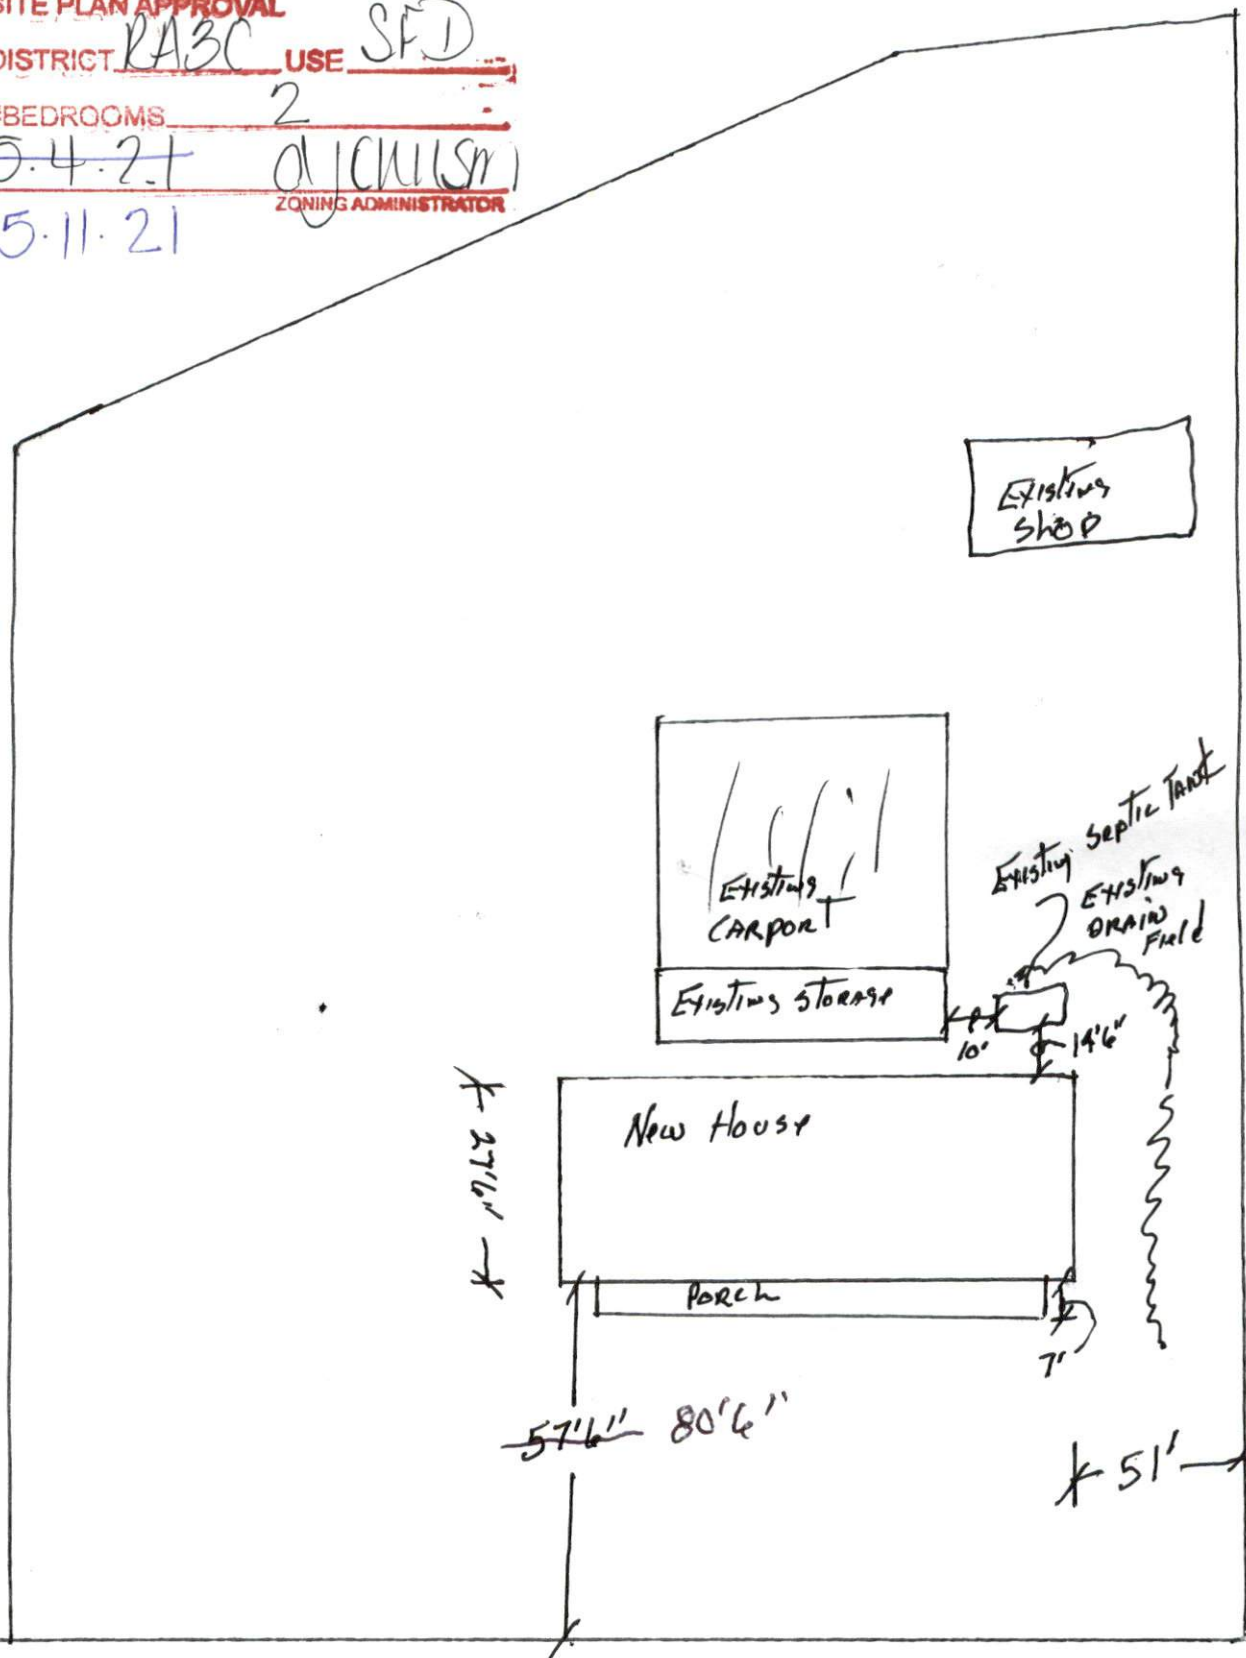 SITE PLAN APPROVAL
DISTRICT RA3C USE SFD
#BEDROOMS 2
5.4.21
ZONING ADMINISTRATOR
5.11.21
Existing
Shop
Existing Septic Tank
Existing
Drain
Field
Existing
CARPORT
Existing Storage
10'
14'6"
New House
27'6"
Porch
7'
57'6" 80'6"
51'